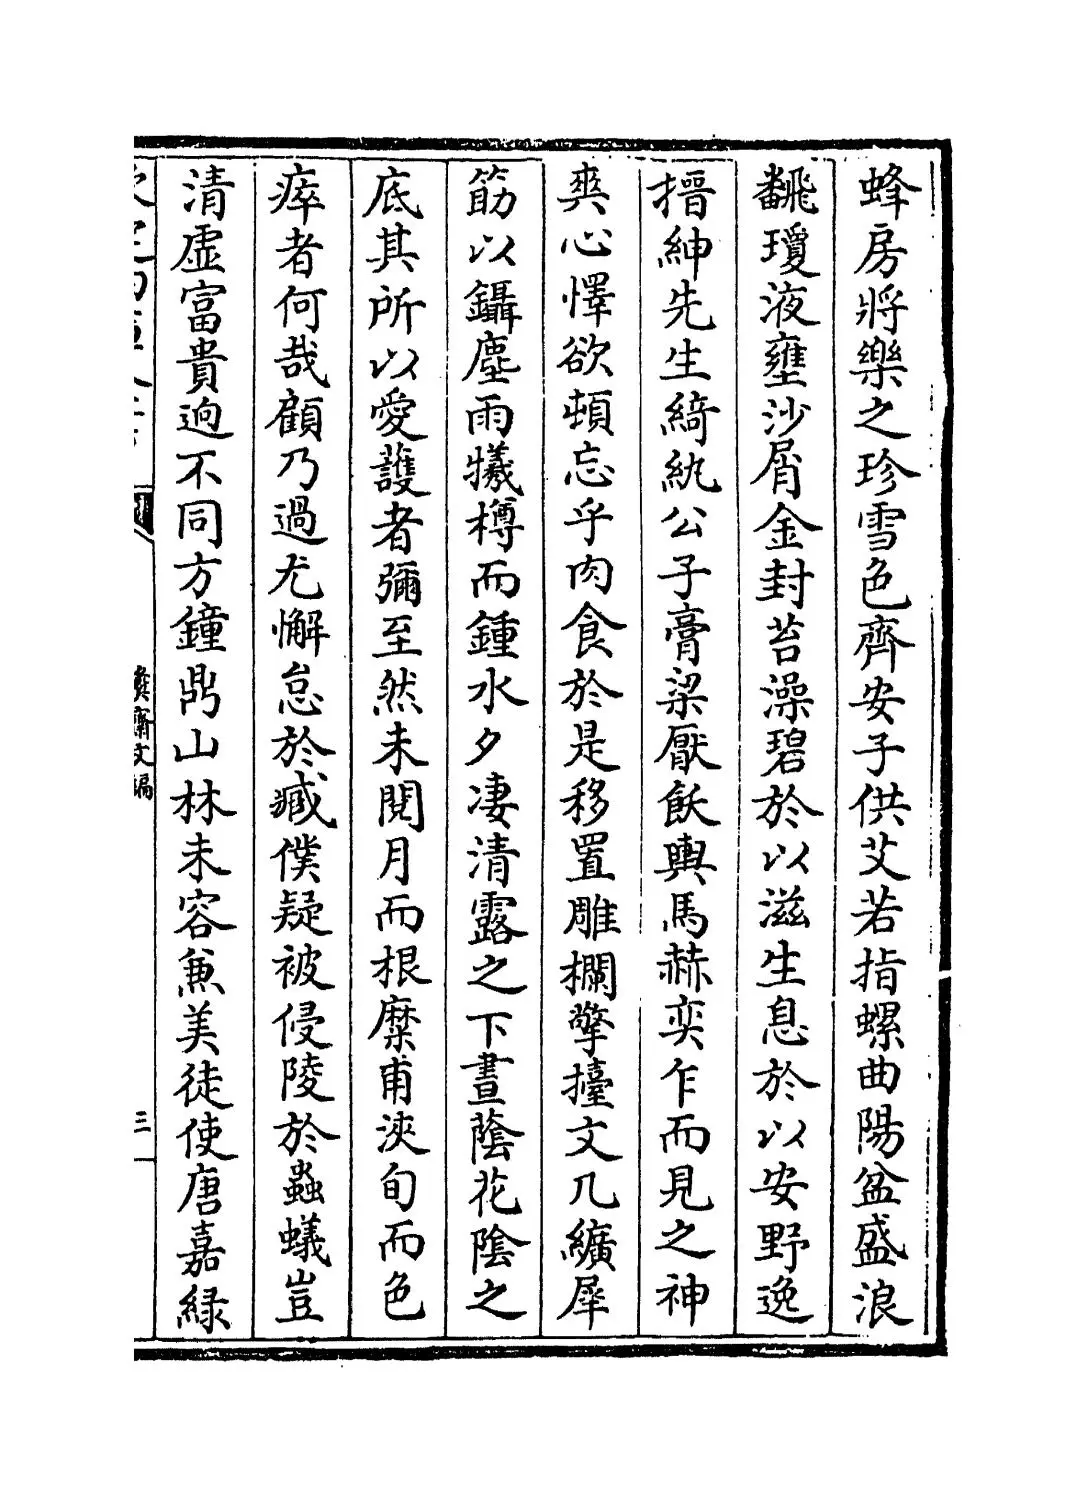 蜂房將樂之珍雪色齊安子供艾若指螺曲陽盆盛浪
飜瓊液壅沙屑金封苔澡碧於以滋生息於以安野逸
搢紳先生綺紈公子膏粱厭飫輿馬赫奕乍而見之神
爽心懌欲頓忘乎肉食於是移置雕欄擎擡文几纊犀
筯以鑷塵雨犧樽而鍾水夕凄清露之下晝蔭花陰之
底其所以愛護者彌至然未閱月而根糜甫浹旬而色
瘁者何哉顧乃過尤懈怠於臧僕疑被侵陵於蟲蟻豈
清虛富貴逈不同方鐘鼎山林未容兼美徒使唐嘉緑
彝齋文編
三